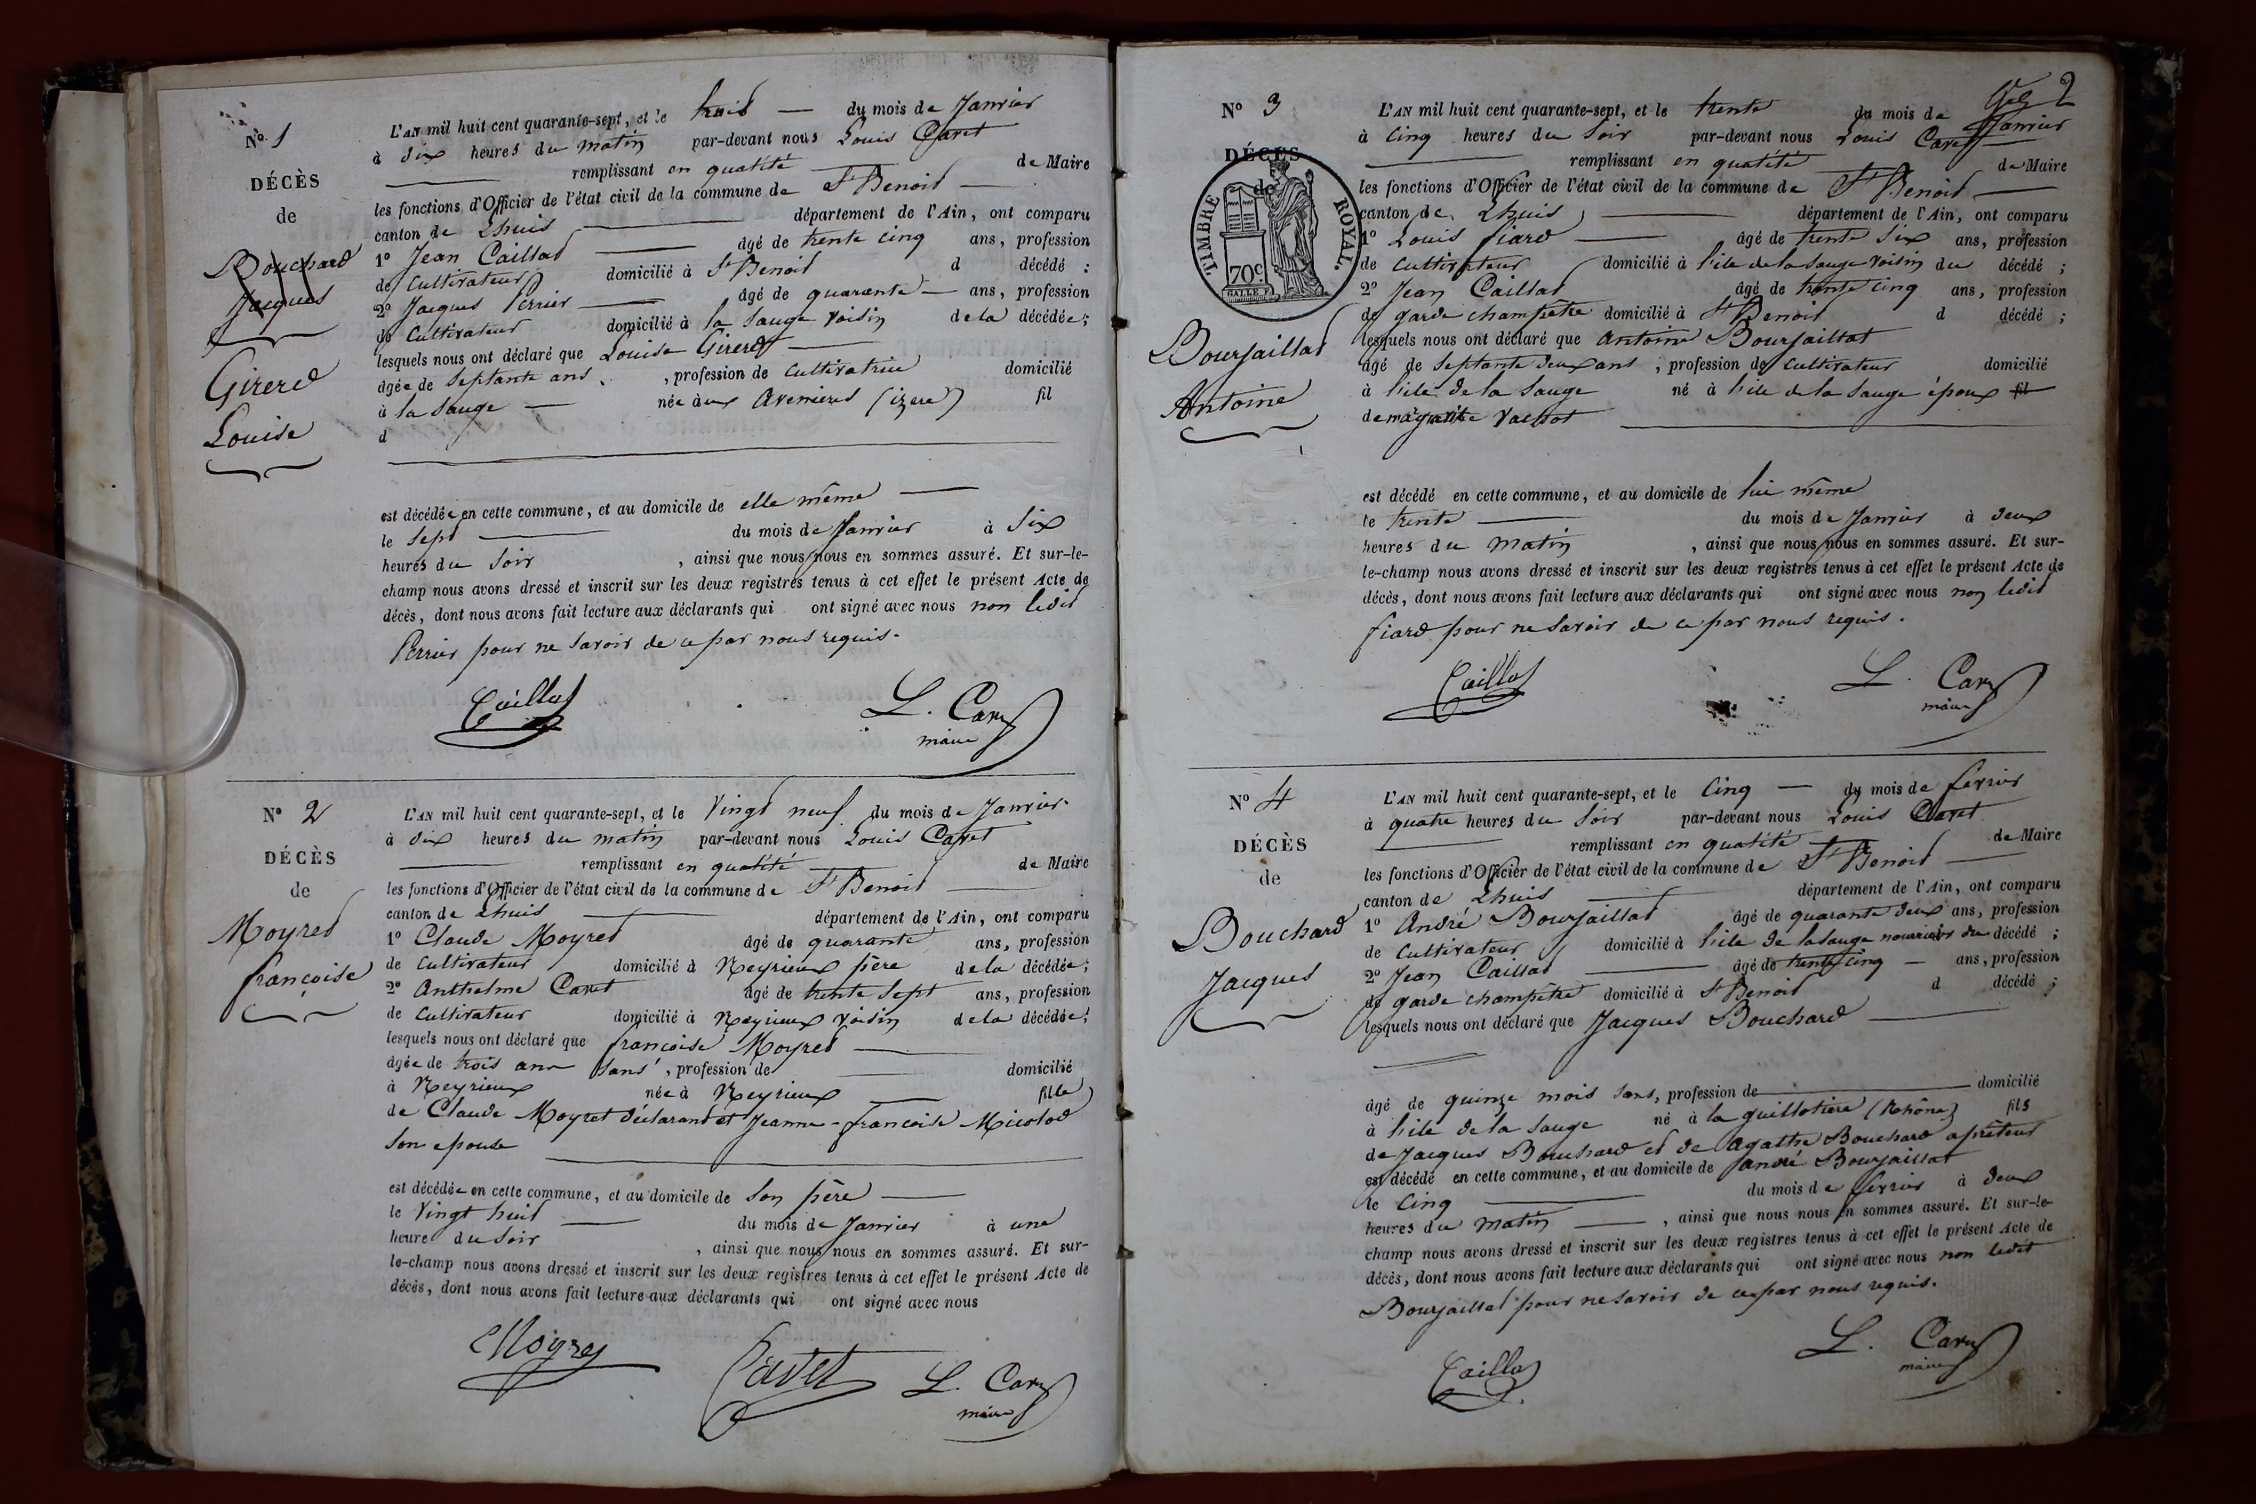 N° 1
DÉCÈS
de
Bouchard
Jacques
Girerd
Louise
L'AN mil huit cent quarante-sept, et le huit du mois de Janvier
à dix heures du matin par-devant nous Louis Cavet
remplissant en qualité de Maire
les fonctions d'Officier de l'état civil de la commune de St Benoit
canton de Lhuis département de l'Ain, ont comparu
1° Jean Caillat âgé de trente cinq ans, profession
de Cultivateur domicilié à St Benoit d décédé ;
2° Jacques Perrier âgé de quarante ans, profession
de Cultivateur domicilié à la Sauge voisin de la décédée ;
lesquels nous ont déclaré que Louise Girerd
âgée de septante ans, profession de cultivatrice domicilié
à la Sauge née à aux Avenieres (izere) fil
d
est décédée en cette commune, et au domicile de elle même
le sept du mois de Janvier à Six
heures du soir, ainsi que nous nous en sommes assuré. Et sur-le-
champ nous avons dressé et inscrit sur les deux registres tenus à cet effet le présent Acte de
décès, dont nous avons fait lecture aux déclarants qui ont signé avec nous non ledit
Perrier pour ne savoir de ce par nous requis.
Caillat L. Cavet
maire
N° 2
DÉCÈS
de
Moyret
françoise
L'AN mil huit cent quarante-sept, et le vingt neuf du mois de Janvier
à dix heures du matin par-devant nous Louis Cavet
remplissant en qualité de Maire
les fonctions d'Officier de l'état civil de la commune de St Benoit
canton de Lhuis département de l'Ain, ont comparu
1° Claude Moyret âgé de quarante ans, profession
de Cultivateur domicilié à Neyrieux père de la décédée ;
2° Anthelme Cavet âgé de trente sept ans, profession
de Cultivateur domicilié à Neyrieux voisin de la décédée ;
lesquels nous ont déclaré que françoise Moyret
âgée de trois ans sans, profession de domicilié
à Neyrieux née à Neyrieux fille
de Claude Moyret déclarant et Jeanne-françoise Micolod
son epouse
est décédée en cette commune, et au domicile de son père
le vingt huit du mois de Janvier à une
heure du soir, ainsi que nous nous en sommes assuré. Et sur-
le-champ nous avons dressé et inscrit sur les deux registres tenus à cet effet le présent Acte de
décès, dont nous avons fait lecture aux déclarants qui ont signé avec nous
Moyret Cavet L. Cavet
maire
2
N° 3
DÉCÈS
de
TIMBRE ROYAL.
70c
Bourjaillat
Antoine
L'AN mil huit cent quarante-sept, et le trente du mois de Janvier
à cinq heures du soir par-devant nous Louis Cavet
remplissant en qualité de Maire
les fonctions d'Officier de l'état civil de la commune de St Benoit
canton de Lhuis département de l'Ain, ont comparu
1° Louis fiard âgé de trente six ans, profession
de cultivateur domicilié à l'ile de la Sauge voisin du décédé ;
2° Jean Caillat âgé de trente cinq ans, profession
de garde champêtre domicilié à St Benoit d décédé ;
lesquels nous ont déclaré que Antoine Bourjaillat
âgé de septante deux ans, profession de cultivateur domicilié
à l'ile de la Sauge né à l'ile de la Sauge époux fil
de Vachot
est décédé en cette commune, et au domicile de lui même
le trente du mois de Janvier à deux
heures du matin, ainsi que nous nous en sommes assuré. Et sur-
le-champ nous avons dressé et inscrit sur les deux registres tenus à cet effet le présent Acte de
décès, dont nous avons fait lecture aux déclarants qui ont signé avec nous non ledit
fiard pour ne savoir de ce par nous requis.
Caillat L. Cavet
maire
N° 4
DÉCÈS
de
Bouchard
Jacques
L'AN mil huit cent quarante-sept, et le cinq du mois de fevrier
à quatre heures du soir par-devant nous Louis Cavet
remplissant en qualité de Maire
les fonctions d'Officier de l'état civil de la commune de St Benoit
canton de Lhuis département de l'Ain, ont comparu
1° André Bourjaillat âgé de quarante deux ans, profession
de cultivateur domicilié à l'ile de la Sauge nourricier du décédé ;
2° Jean Caillat âgé de trente cinq ans, profession
de garde champêtre domicilié à St Benoit d décédé ;
lesquels nous ont déclaré que Jacques Bouchard
âgé de quinze mois sans, profession de domicilié
à l'ile de la Sauge né à la guillotiere (Rohône) fils
de Jacques Bouchard et de Agathe Bouchard aprêteur
est décédé en cette commune, et au domicile de andré Bourjaillat
le cinq du mois de fevrier à deux
heures du matin, ainsi que nous nous en sommes assuré. Et sur-le-
champ nous avons dressé et inscrit sur les deux registres tenus à cet effet le présent Acte de
décès, dont nous avons fait lecture aux déclarants qui ont signé avec nous non ledit
Bourjaillat pour ne savoir de ce par nous requis.
Caillat L. Cavet
maire